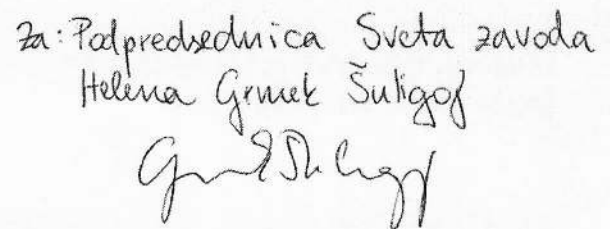 Za: Podpredsednica Sveta zavoda
Helena Grmek Šuligoj